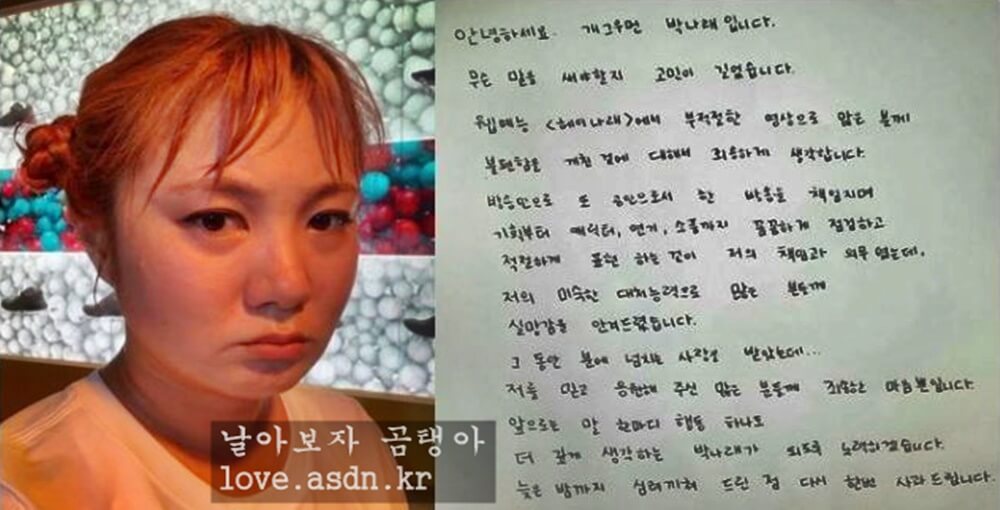 안녕하세요. 개그우먼 박나래입니다.
무슨 말을 새야할지 고민이 길었습니다.
웹예능 <헤이나래>에서 부적절한 영상으로 많은 분께
불편함을 끼친 것에 대해서 죄송하게 생각합니다.
방송인으로 또 공인으로서 한 방송을 책임지며
기획부터 캐릭터, 연기, 소품까지 꼼꼼하게 점검하고
적절하게 표현 하는것이 저의 책임과 의무 였는데,
저의 미숙한 대처능력으로 많은 분들께
실망감을 안겨드렸습니다.
그 동안 분에 넘치는 사랑을 받았는데...
저를 믿고 응원해 주신 많은 분들께 죄송한 마음뿐입니다.
앞으로는 말 한마디 행동 하나도
더 깊게 생각하는 박나래가 되도록 노력하겠습니다.
늦은 밤까지 심려끼쳐 드린 점 다시 한번 사과드립니다.
날아보자 곰탱아
love.asdn.kr